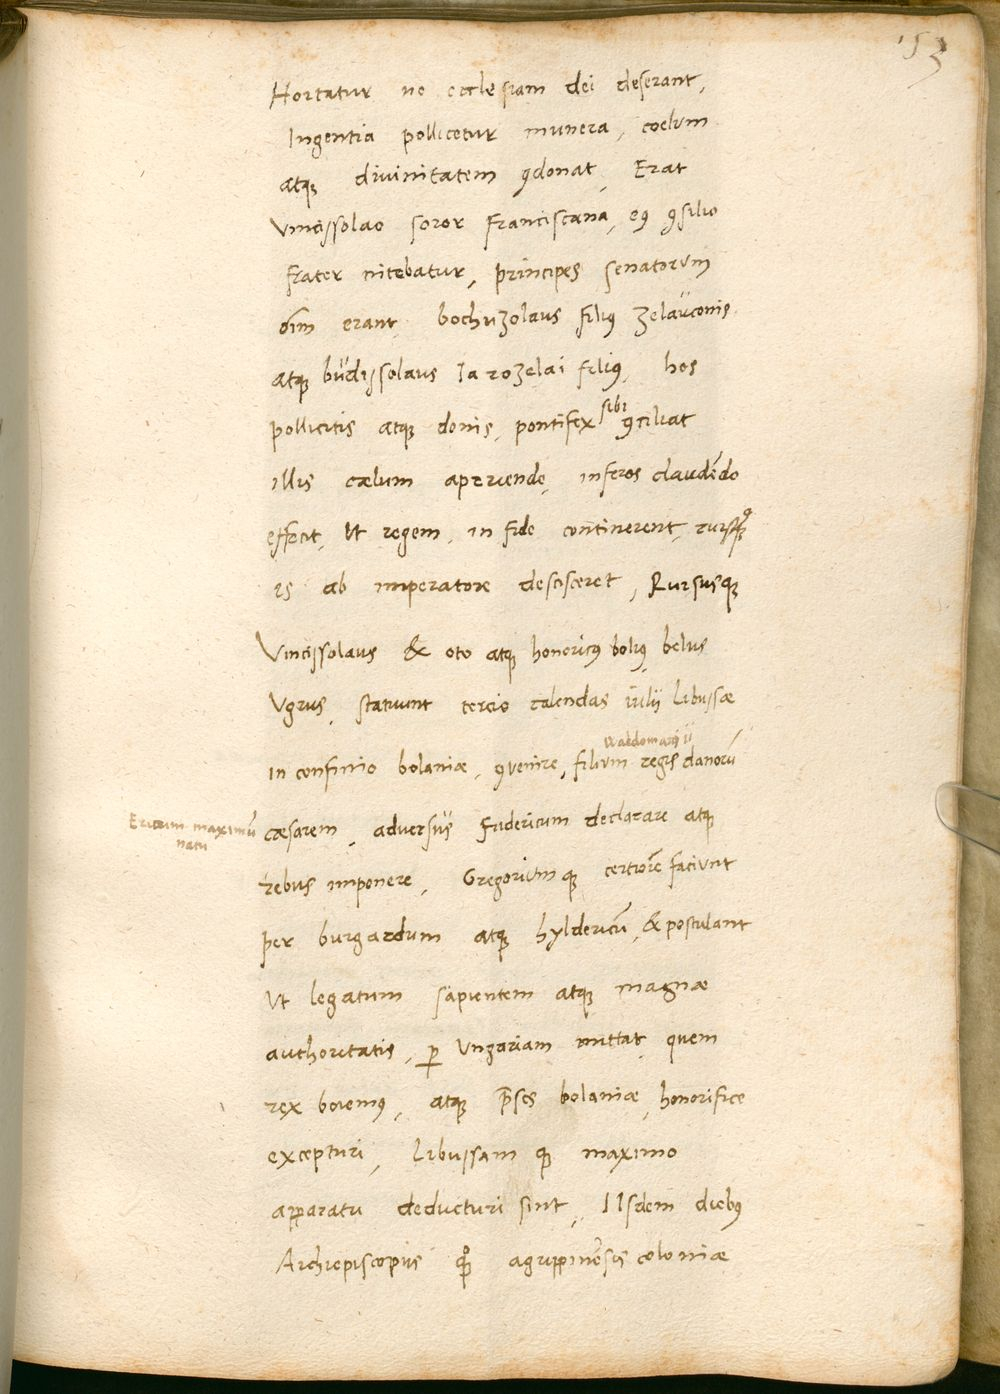 153
Hortatur ne ecclesiam dei deserant,
Ingentia pollicetur munera, coelum
atq; divinitatem ꝯdonat, Erat
Vincissolao soror Franciscana, eꝰ ꝯsilio
frater nitebatur, principes senatorum
oīm erant bochuzolaus filiꝰ zelauconis
atq; budissolaus Iarozelai filiꝰ, hos
pollicitis atq; donis, pontifex sibi ꝯciliat
illis cælum aperiendo, inferos claudēdo
effecit, Ut regem, in fide continerent,
is ab imperatore descisceret, Rursusq;
Vincissolaus & oto atq; honoricꝰ boiꝰ, belus
Vgrus, statuunt tercio calendas iulij Libussæ
Waldomarij ij
in confinio bolaniæ, ꝯvenire, filium regis danorū
Ericum maximū natu
cæsarem, adversus Fridericum declarare atq;
rebus imponere, Gregorium q; certiorē faciunt
per burgardum atq; hyldericū, & postulant
Ut legatum sapientem atq; magnæ
authoritatis, ꝑ Ungariam mittat, quem
rex boiemꝰ, atq; p̄ses bolaniæ, honorifice
excepturi, Libussam q; maximo
apparatu deducturi sint, IIsdem diebꝰ
Archiepiscopus qꝫ agrippinēsis coloniæ